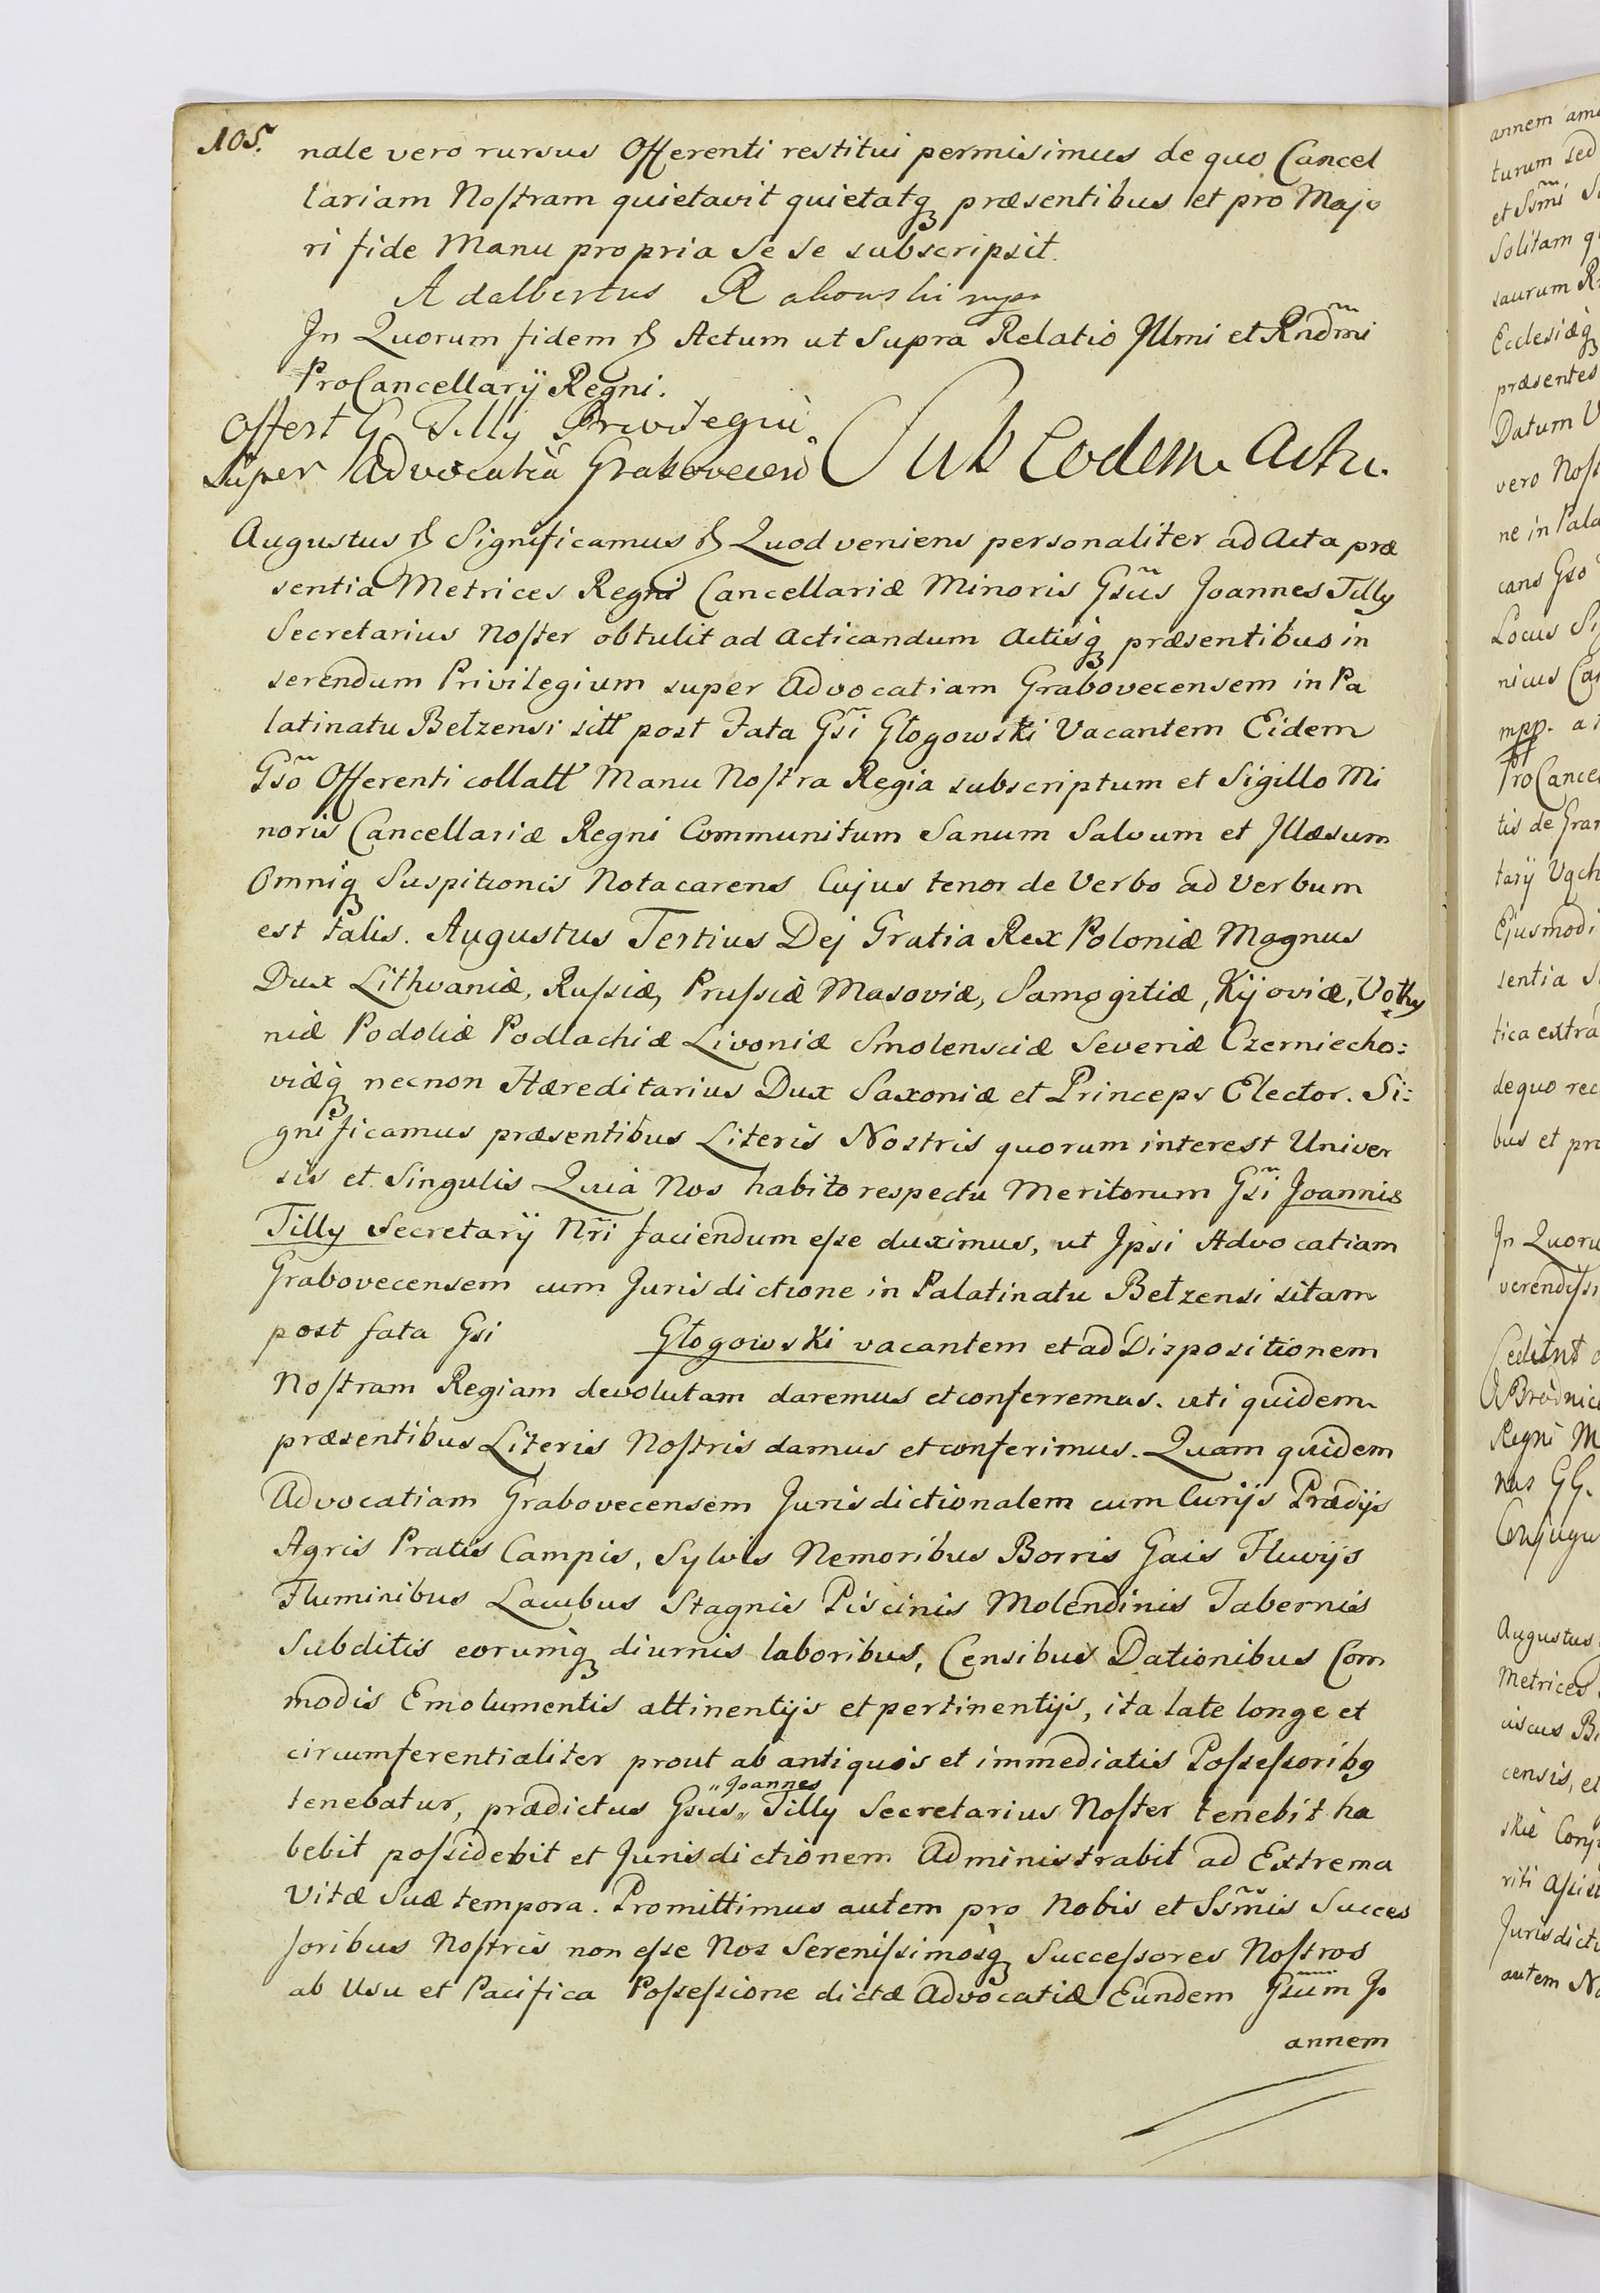 105.
nale vero rursus Offerenti restitui permisimus de quo Cancel
lariam Nostram quietavit quietatq præsentibus et pro Majo
ri fide Manu propria Se se subscripsit.
Adalbertus Rakowski mpr
In Quorum fidem & Actum ut Supra Relatio Illmi et Rndmi
ProCancellarÿ Regni.
Offert G Tilly Privilegiũ
super Advocatiã Graboveceñ Sub Eodem Actu.
Augustus & Significamus & Quod veniens personaliter ad Acta præ
sentia Metrices Regni Cancellariæ Minoris Gsũs Joannes Tilly
Secretarius Noster obtulit ad Acticandum Actisq præsentibus in
serendum Privilegium super Advocatiam Grabovecensem in Pa
latinatu Belzensi sitt post Fata Gsĩ Głogowski Vacantem Eidem
Gsõ Offerenti collatt Manu Nostra Regia subscriptum et Sigillo Mi
noris Cancellariæ Regni Communitum Sanum Salvum et Illæsum
Omniq Suspitionis Nota carens Cujus tenor de Verbo ad Verbum
est talis. Augustus Tertius Dej Gratia Rex Poloniæ Magnus
Dux Lithvaniæ, Russiæ, Prussiæ Masoviæ, Samogitiæ, Kijoviæ, Volhy
niæ Podoliæ Podlachiæ Livoniæ Smolensciæ Severiæ Czerniecho:
viæq necnon Hæreditarius Dux Saxoniæ et Princeps Elector. Si:
gnificamus præsentibus Literis Nostris quorum interest Univer
sis et Singulis Quia Nos habito respectu Meritorum Gsĩ Joannis
Tilly Secretarÿ Nři faciendum esse duximus, ut Ipsi Advocatiam
Grabovecensem cum Jurisdictione in Palatinatu Belzensi sitam
post fata Gsi Głogowski vacantem et ad Dispositionem
Nostram Regiam devolutam daremus et conferremus. uti quidem
præsentibus Literis Nostris damus et conferimus. Quam quidem
Advocatiam Grabovecensem Jurisdictionalem cum Curijs Prædijs
Agris Pratis Campis, Sylvis Nemoribus Borris Gais Fluvijs
Fluminibus Lacubus Stagnis Piscinis Molendinis Tabernis
Subditis eorumq diurnis laboribus, Censibus Dationibus Com
modis Emolumentis attinentijs et pertinentijs, ita late longe et
circumferentialiter prout ab antiquis et immediatis Possessoribq
tenebatur, prædictus Gsus „Joannes„ Tilly Secretarius Noster tenebit ha
bebit possidebit et Jurisdictionem Administrabit ad Extrema
Vitæ Suæ tempora. Promittimus autem pro Nobis et Ssm̃is Succes
soribus Nostris non esse Nos Serenissimosq Successores Nostros
ab Usu et Pacifica Possessione dictæ Advocatiæ Eundem Gsũm Jo
annem